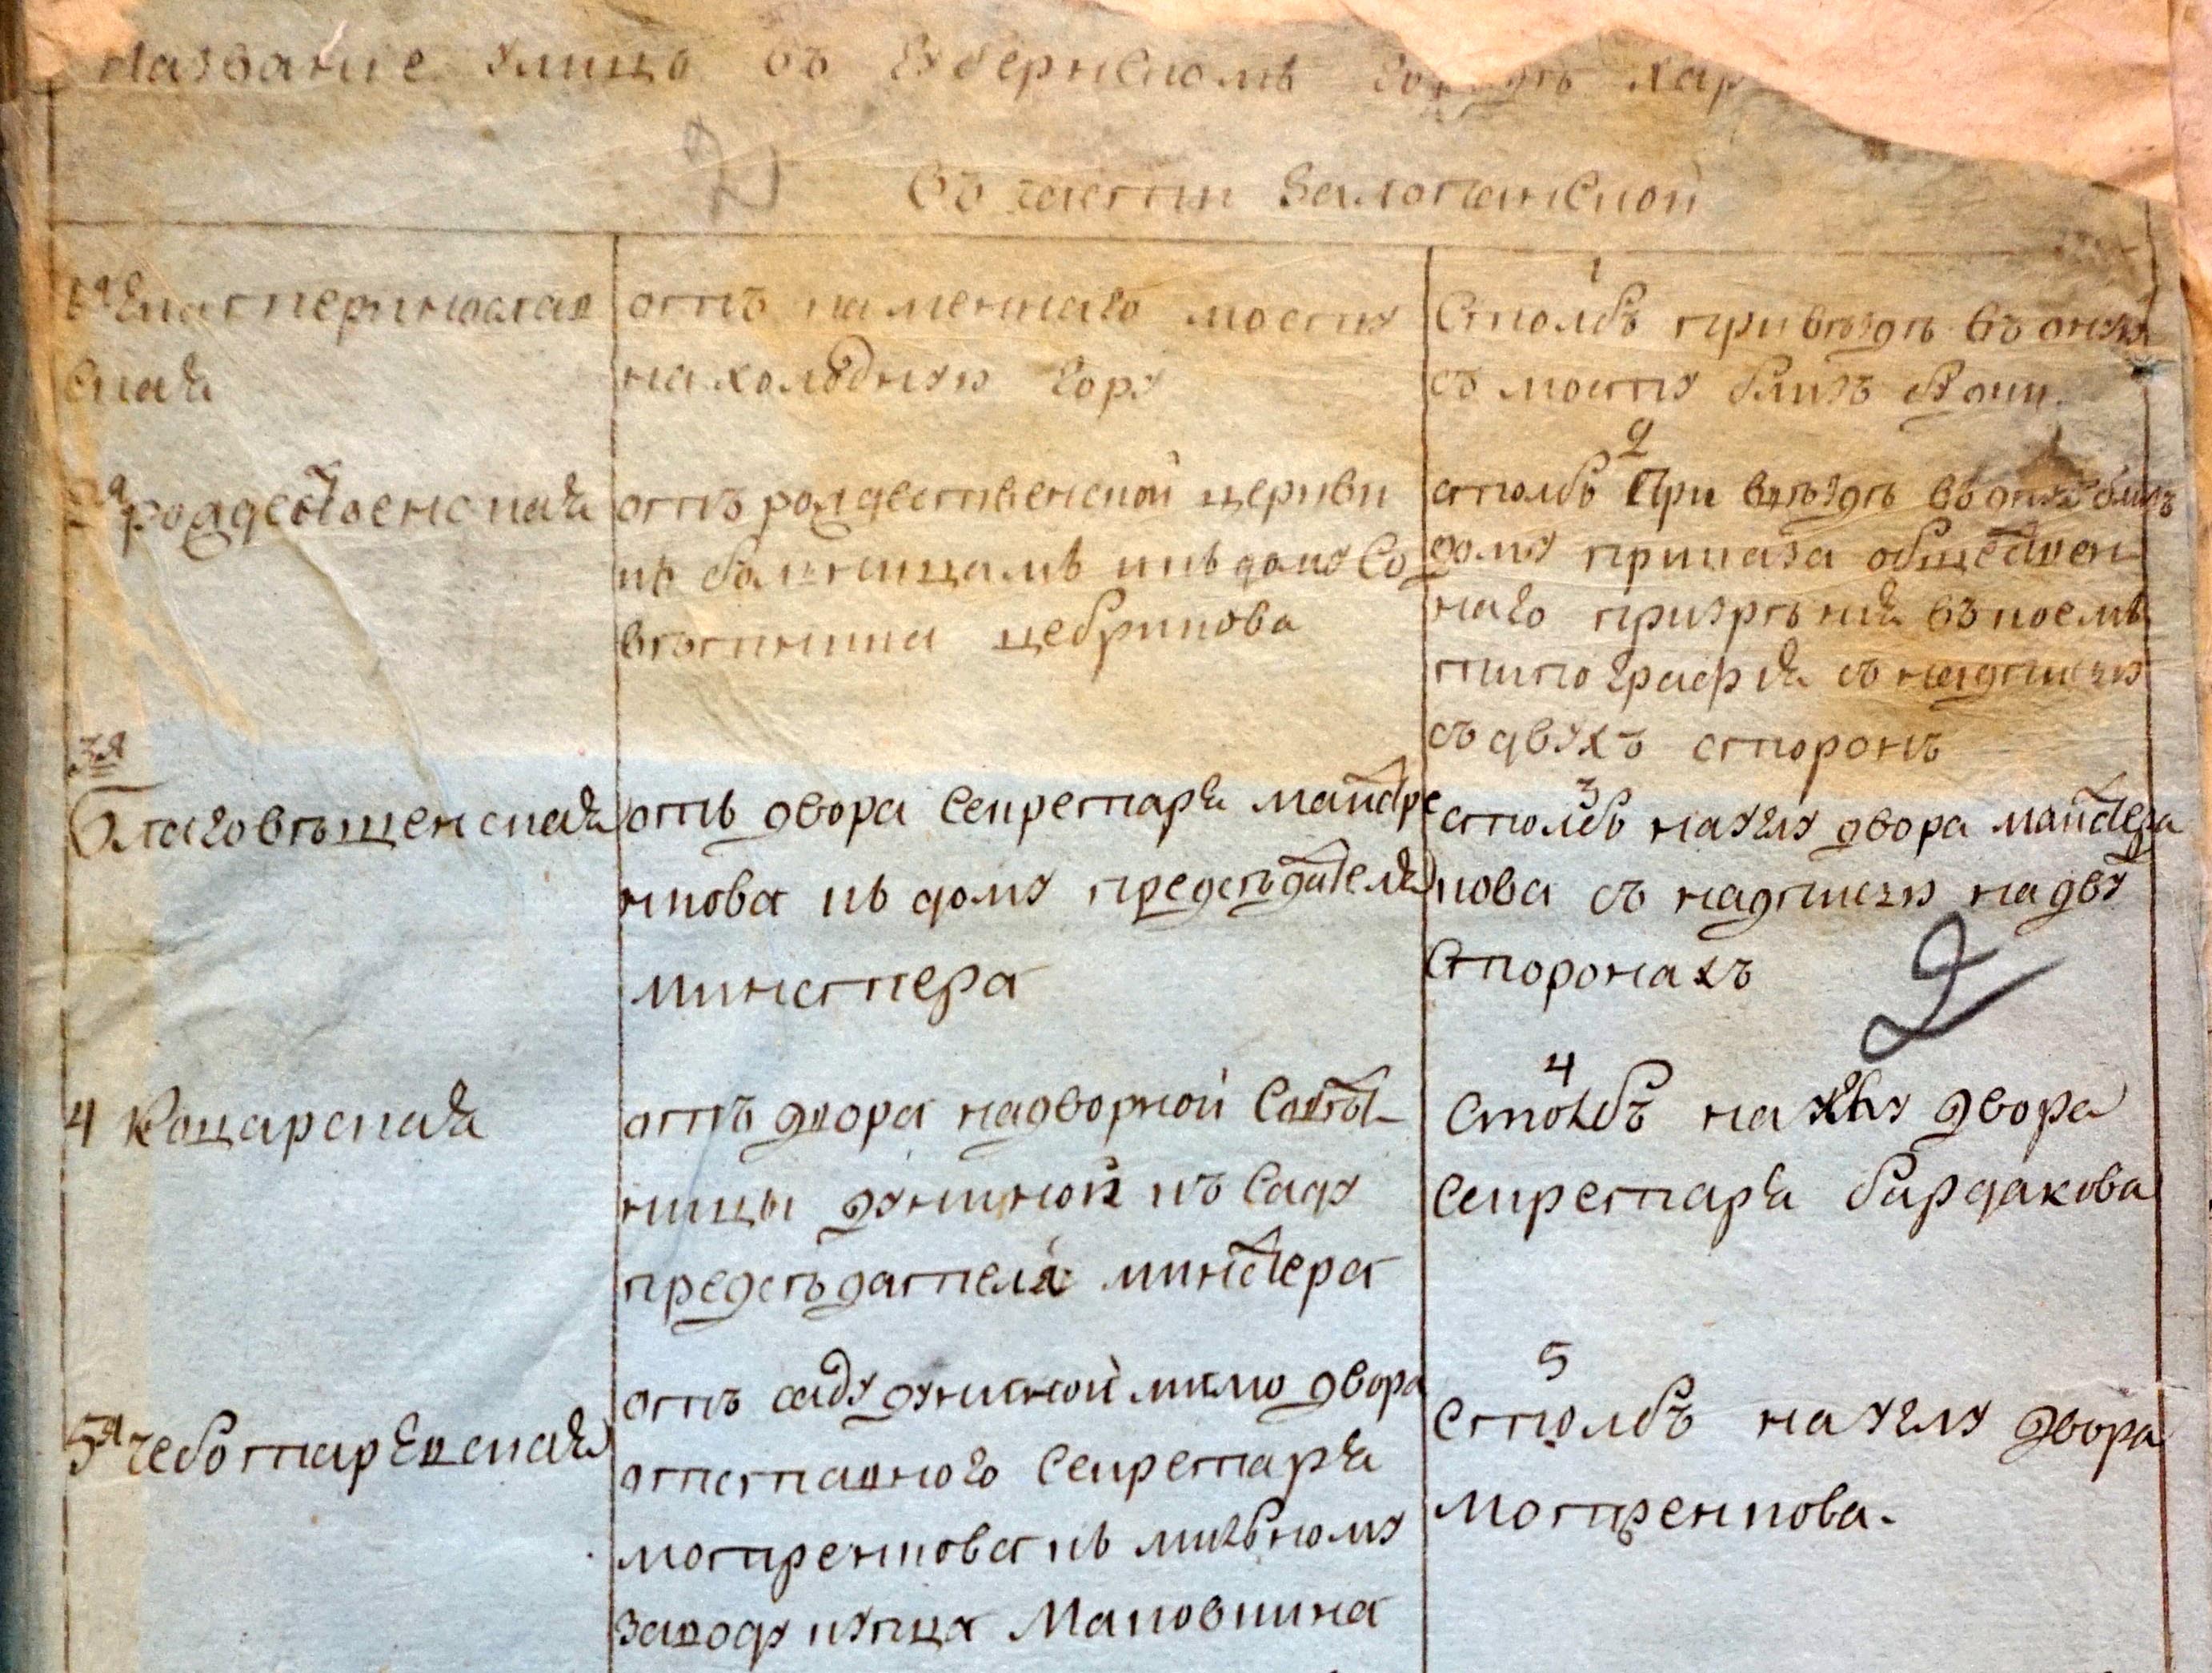 Название улицъ въ Губернскомъ городѣ Хар
2 въ части Залопанской
1я Екатеринослав
ская
отъ каменнаго мосту
на холодную гору
1
Столбъ при въѣздѣ въ оную
съ мосту близъ
2я рождественская
отъ рождественской церкви
къ болницамъ и къ дому Со
вѣтника цебрикова
2
столбъ При въѣздѣ въ оную близъ
дому приказа общественн
наго призрѣния въ коемъ
типография съ надписью
съ двухъ сторонъ
3я
Благовѣщенская
отъ двора Секретаря мантре
нкова къ дому председателя
минстера
3
столбъ на углу двора
кова съ надписью на двух
сторонахъ
2
4 Коцарская
отъ двора надворной Совѣт
ницы дуниной къ Саду
председателя минстера
4
Столбъ на углу двора
Секретаря бардакова
5я чеботарѣвская
отъ саду дуниной мимо двора
отставного Секретаря
мотренкова къ
заводу купца Маковкина
5
Столбъ на углу двора
мотренкова.